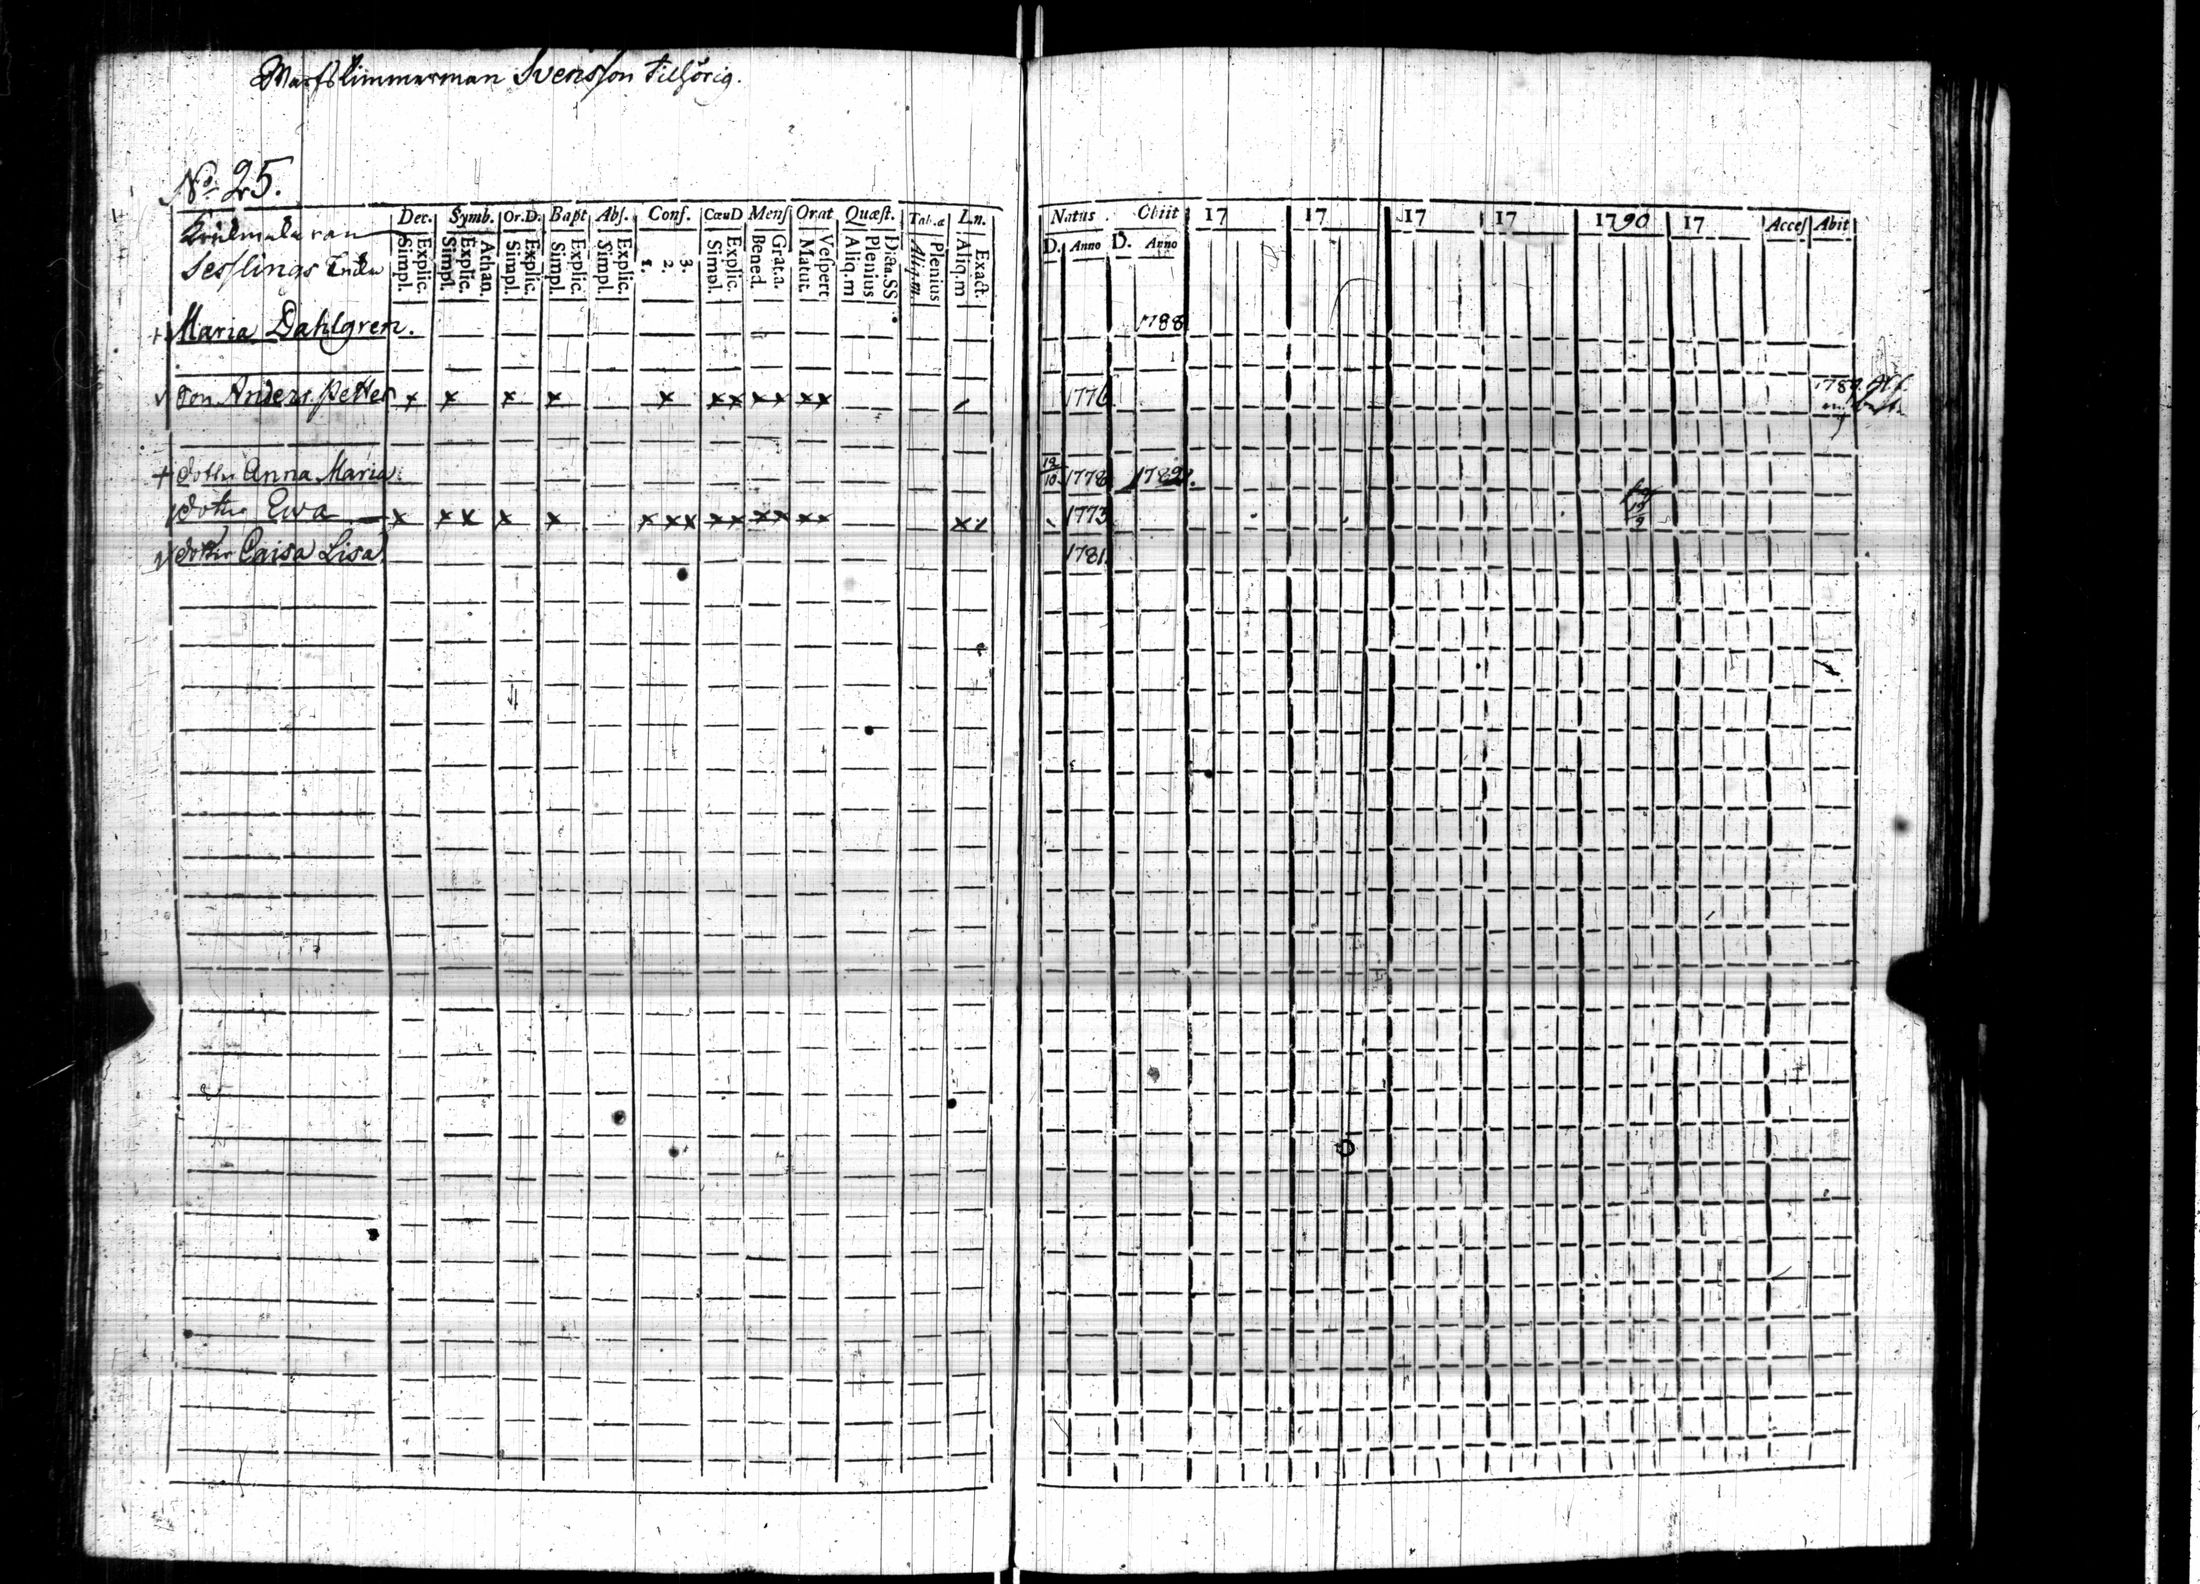 Warfstimmerman Svensson tillhörig.
No 25.
Dec. Symb. Or.D. Bapt Abs. Conf. CœnD Mens Orat Quæst. Tab.æ Ln.
Simpl. Explic. Simpl. Explic. Athan. Simpl. Explic. Simpl. Explic. Simpl. Explic. 1. 2. 3. Simpl. Explic. Bened. Grat.a. Matut. Vespert Aliq.m Plenius Dicta.SS Aliq.m. Plenius Aliq.m Exact.
Natus Obiit 17 17 17 17 1790 17 Acces Abit
D. Anno D. Anno
Sesslings Enka
+ Maria Dahlgren. 1788
Son Anders Petter x x x x x xx xx xx 1776 1789
+ dotter Anna Maria 19/10 1778 1782.
dotter Ewa x xx x x x xx xx xx xx x 1773
dotter Caisa Lisa 1781.